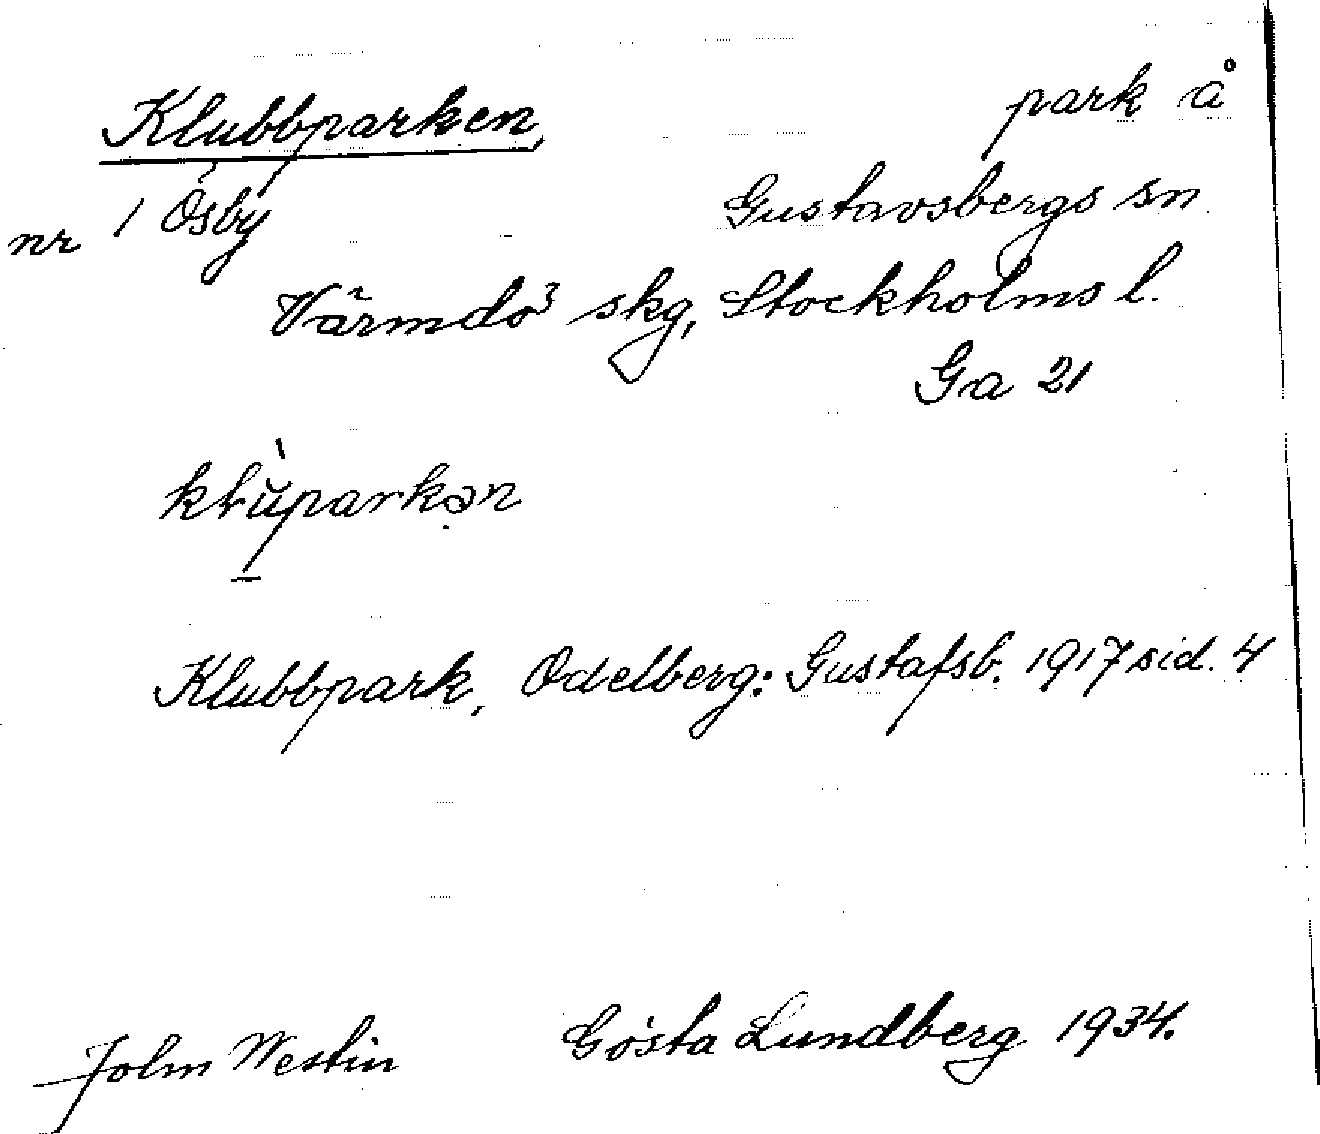 Klubbparken, park å
nr 1 Ösby Gustavsbergs sn
Värmdö skg, Stockholms l.
Ga 21
Klubbpark, Odelberg: Gustafsb. 1917 sid. 4
John Westin Gösta Lundberg 1934.